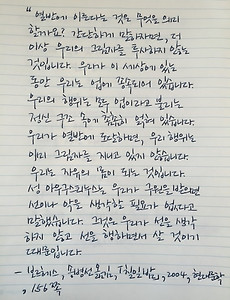 “열반에 이른다는 것은 무엇을 의미
할까요? 간단하게 말하자면, 더
이상 우리의 그림자를 투사하지 않는
것입니다. 우리가 이 세상에 있는
동안 우리는 업에 종속되어 있습니다.
우리의 행위는 모두 업이라고 불리는
정신 구조 속에 얽혀 있습니다.
우리가 열반에 도달하면, 우리 행위는
이미 그림자를 지니고 있지 않습니다.
우리는 자유의 몸이 되는 것입니다.
성 아우구스티누스는 우리가 구원을 받으면
선이나 악을 생각할 필요가 없다고
말했습니다. 그것은 우리가 선을 생각
하지 않고 선을 행하면서 살 것이기
때문입니다.
- 보르헤스, 송병선 옮김, 『칠일밤』, 2004, 현대문학
, 156쪽